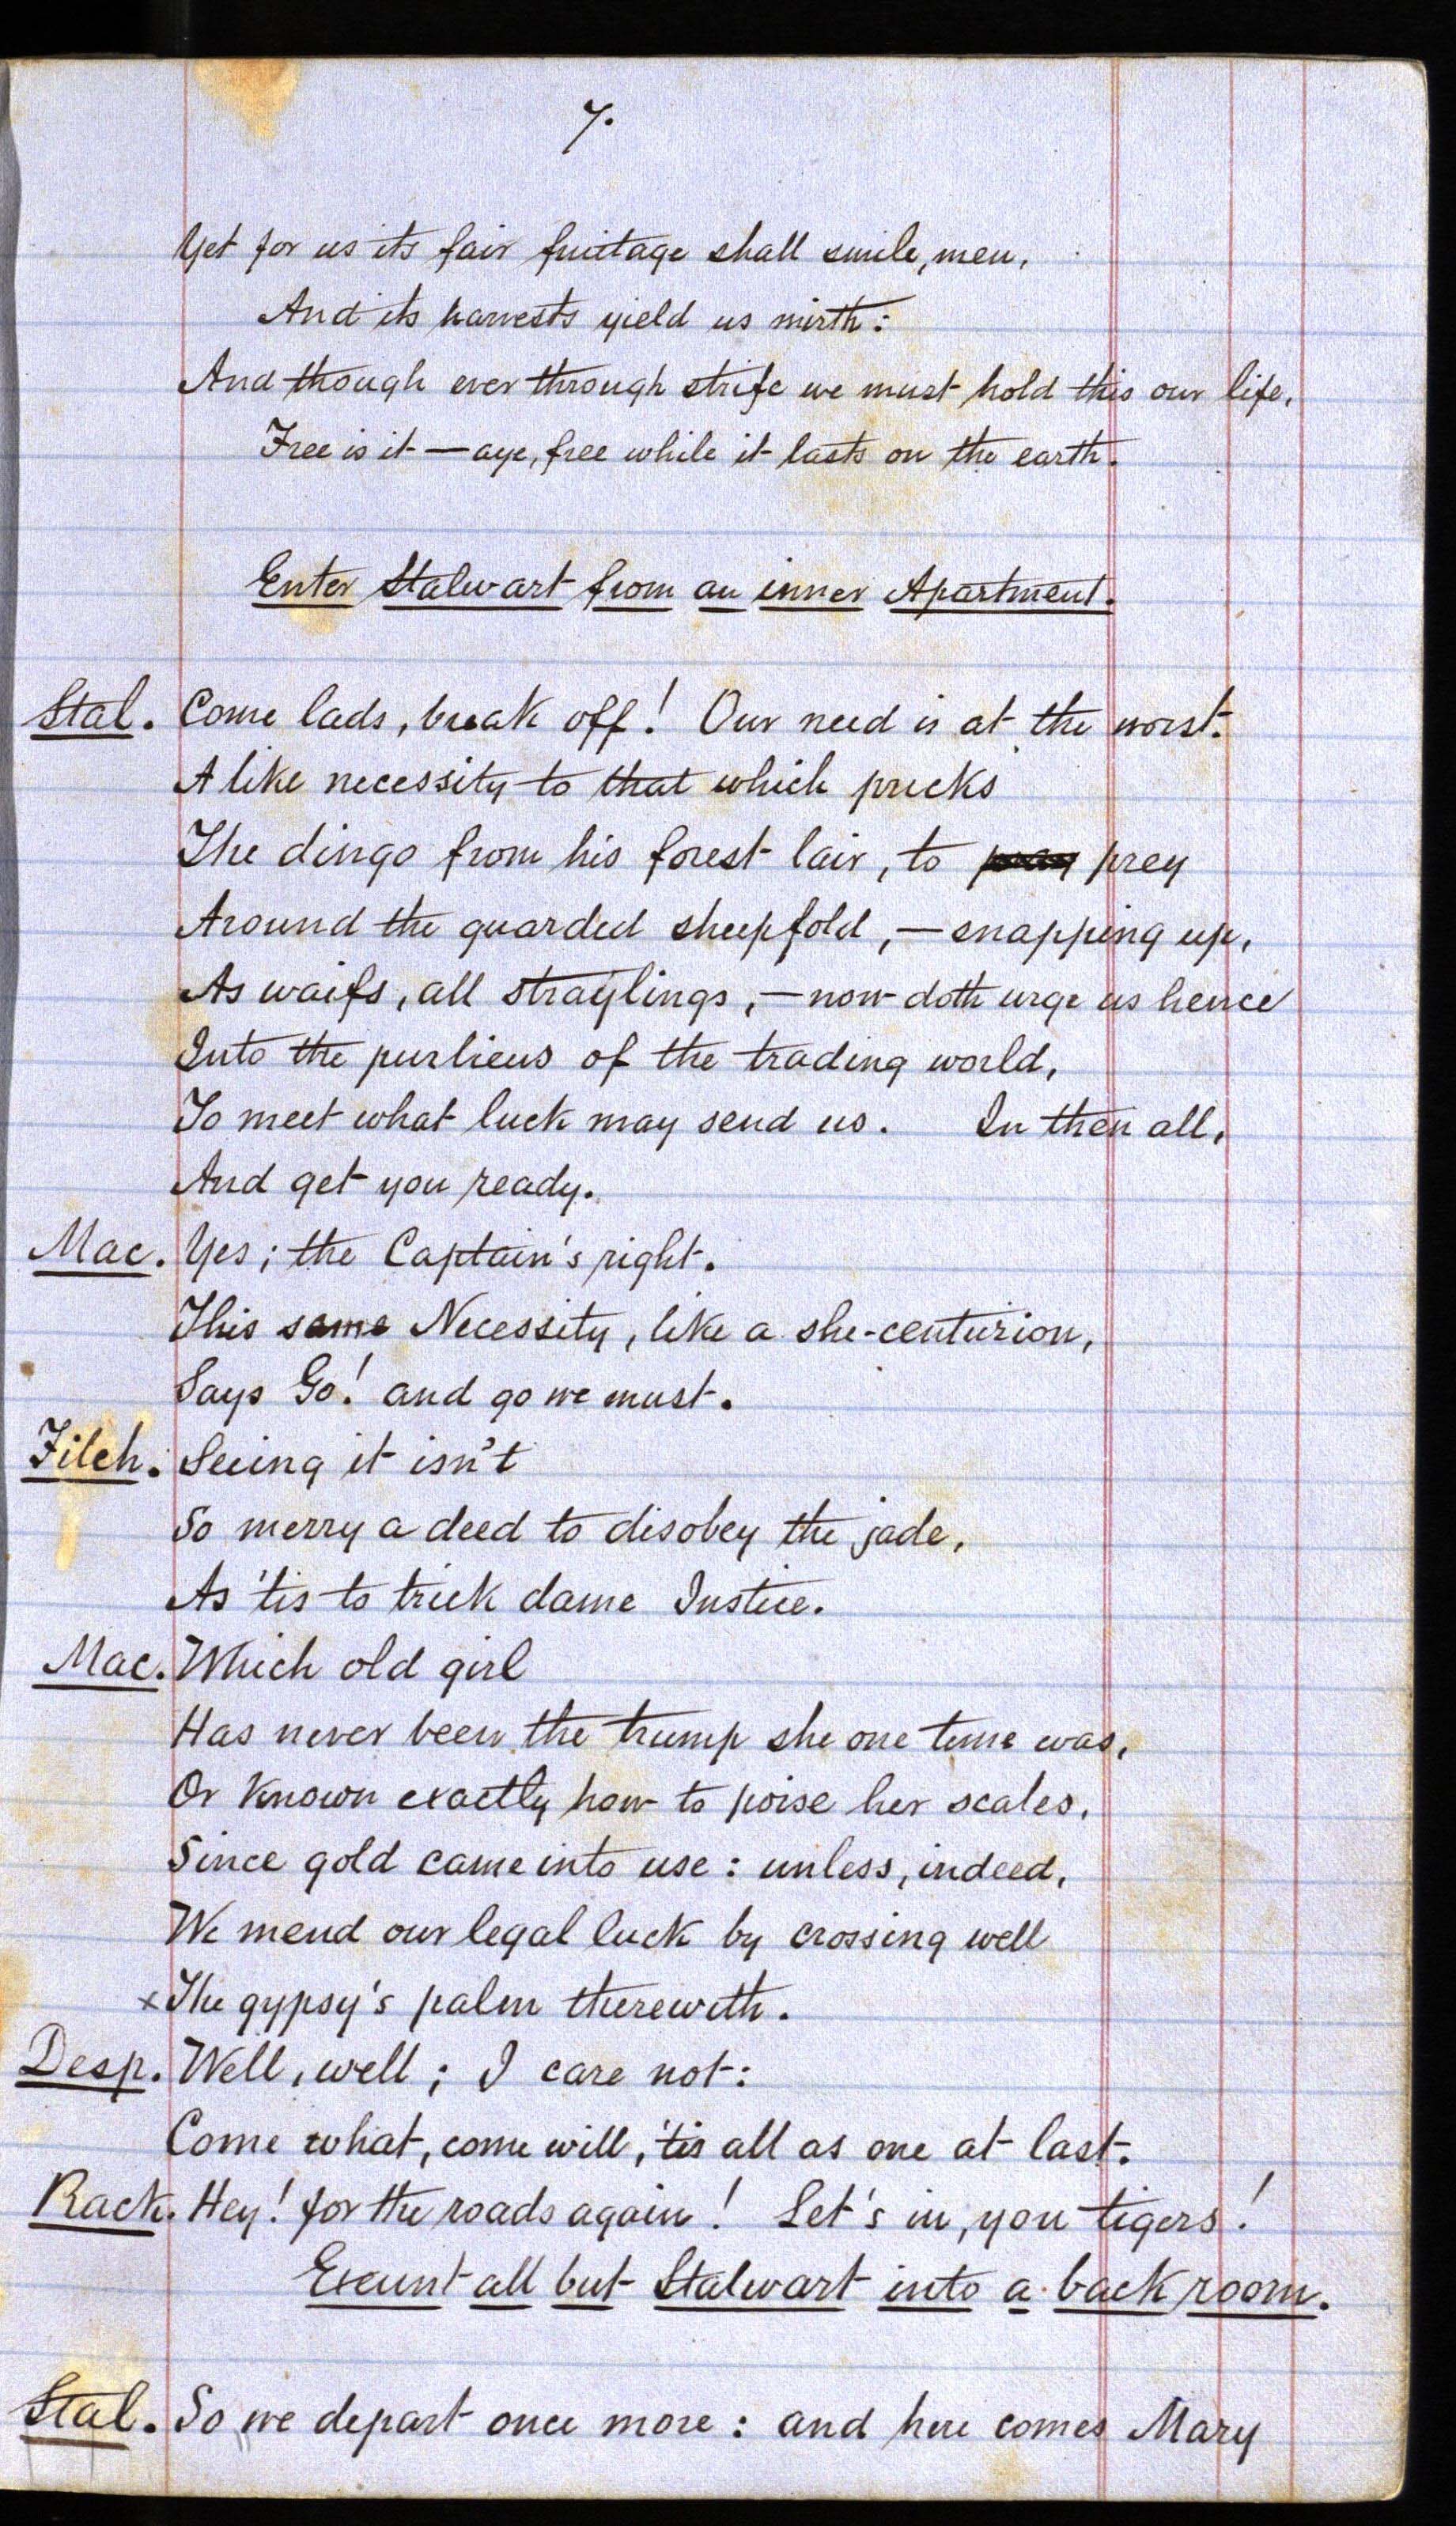 7.
Yet for us its fair fruitage shall smile, men,
And its harvests yield us mirth:
And though ever through strife we must hold this our life,
Free is it — aye, free while it lasts on the earth.
Enter Stalwart from an inner Apartment.
Stal. Come lads, break off! Our need is at the worst.
A like necessity to that which pricks
The dingo from his forest lair, to prey
Around the guarded sheepfold, — snapping up,
As waifs, all straylings, — now doth urge us hence
Into the purlieus of the trading world,
To meet what luck may send us. In then all,
And get you ready.
Mac. Yes; the Captain's right.
This same Necessity, like a she-centurion,
Says Go! and go we must.
Filch. Seeing it isn't
So merry a deed to disobey the jade,
As 'tis to trick dame Justice.
Mac. Which old girl
Has never been the trump she one time was,
Or known exactly how to poise her scales,
Since gold came into use: unless, indeed,
We mend our legal luck by crossing well
x The gypsy's palm therewith.
Desp. Well, well; I care not:
Come what, come will, 'tis all as one at last.
Rack. Hey! for the roads again! Let's in, you tigers!
Exeunt all but Stalwart into a back room.
Stal. So we depart once more: and here comes Mary